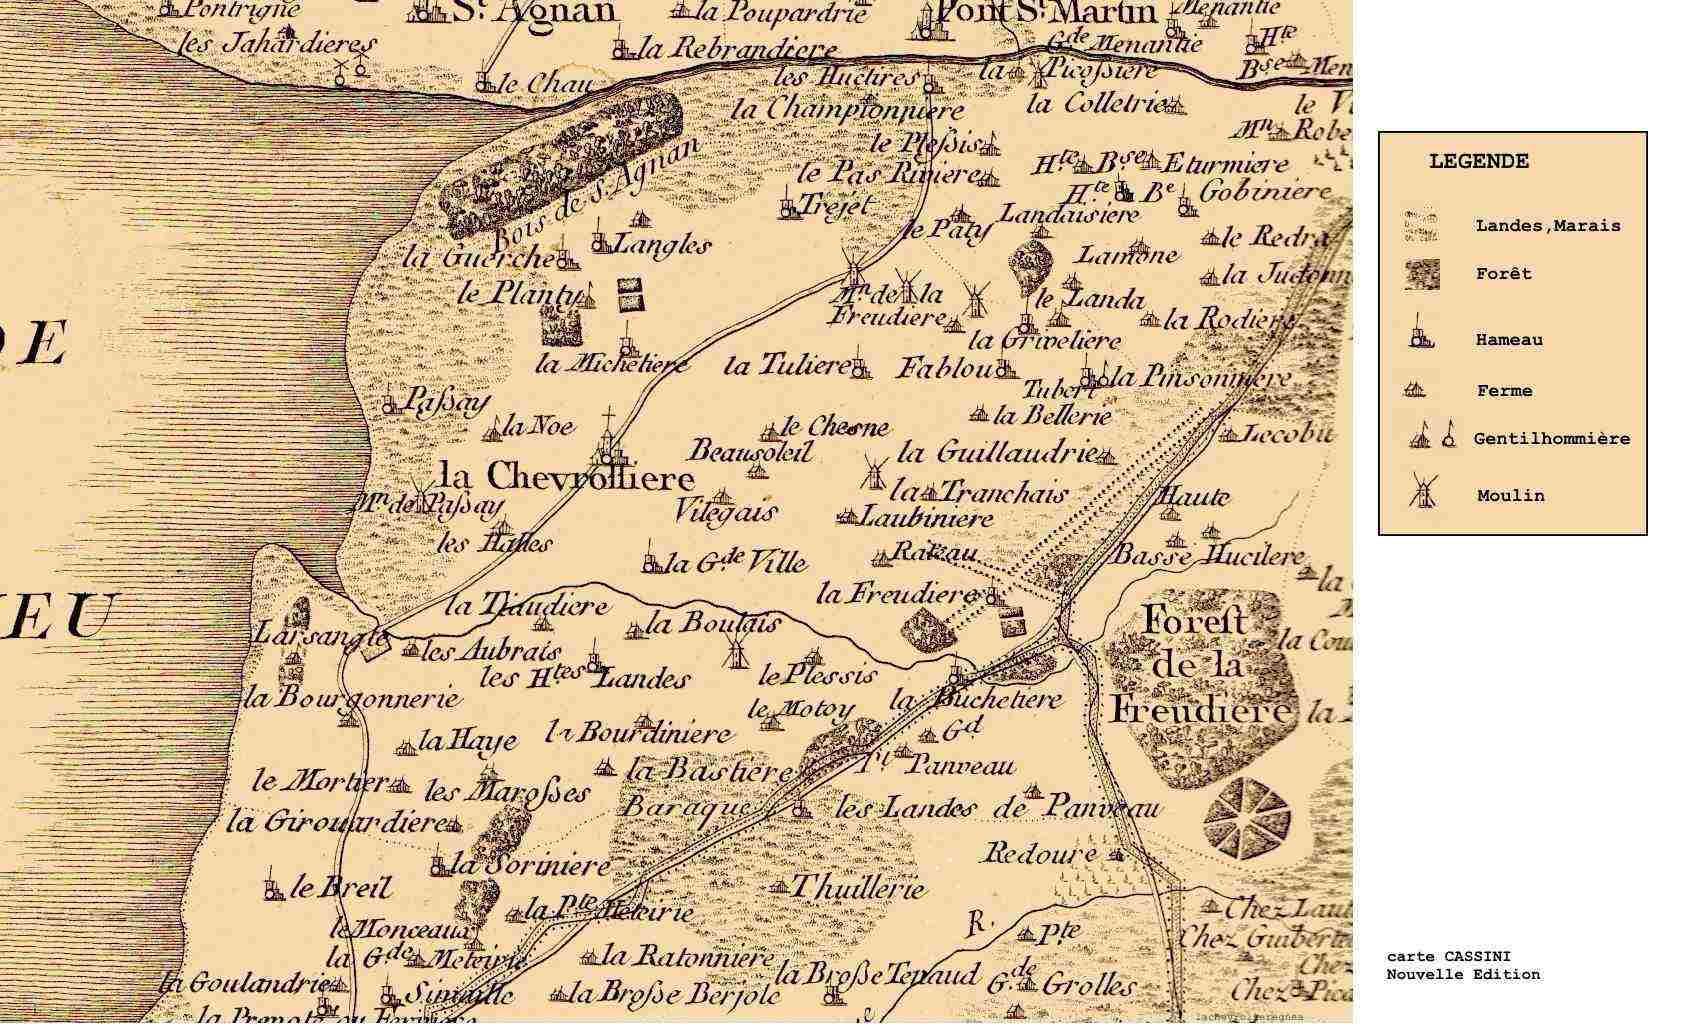 Pontrigne
St. Agnan
la Poupardrie
Pont St. Martin
Menantie
les Jahardieres
la Rebrandiere
Gde Menantie
Hte
Bse
le Chau
les Huctires
la Picoſsiere
la Championniere
la Colletrie
le Pleſsis
Mn Robe
le Pas Riviere
Hte Bse Eturmiere
Hte Be Gobiniere
Bois de St. Agnan
Trejet
Landaisiere
la Guerche
Langles
le Paty
Lamone
le Redra
le Planty
Mn de la Freudiere
le Landa
la Judonn
la Rodiere
la Griveliere
la Micheliere
la Tuliere
Fablou
Tubert
la Pinsonniere
DE
Paſsay
la Noe
le Chesne
la Bellerie
Lecobit
Beausoleil
la Guillaudrie
la Chevrolliere
la Tranchais
Haute
Mn de Paſsay
Vilegais
Laubiniere
les Halles
la Gde Ville
Rateau
Basse Hucilere
IEU
la Tiaudiere
la Freudiere
Larsangle
la Boulais
Foreſt
de la
Freudiere
les Aubrais
les Htes Landes
le Plessis
la Bourgonnerie
la Buchetiere
le Motoy
la Haye
la Bourdiniere
Gd
Pt Panveau
le Mortier
les Maroſses
la Bastiere
Baraque
les Landes de Panveau
la Girouardiere
Redoure
la Soriniere
le Breil
Thuillerie
la Pte Meteirie
le Monceaux
R.
Pte
Chez Laut
Chez Guiberte
la Gde Meteirie
la Ratonniere
la Goulandrie
Sinaille
la Broſse Berjole
la Broſse Tenaud
Gde Grolles
LEGENDE
Landes,Marais
Forêt
Hameau
Ferme
Gentilhommière
Moulin
carte CASSINI
Nouvelle Edition